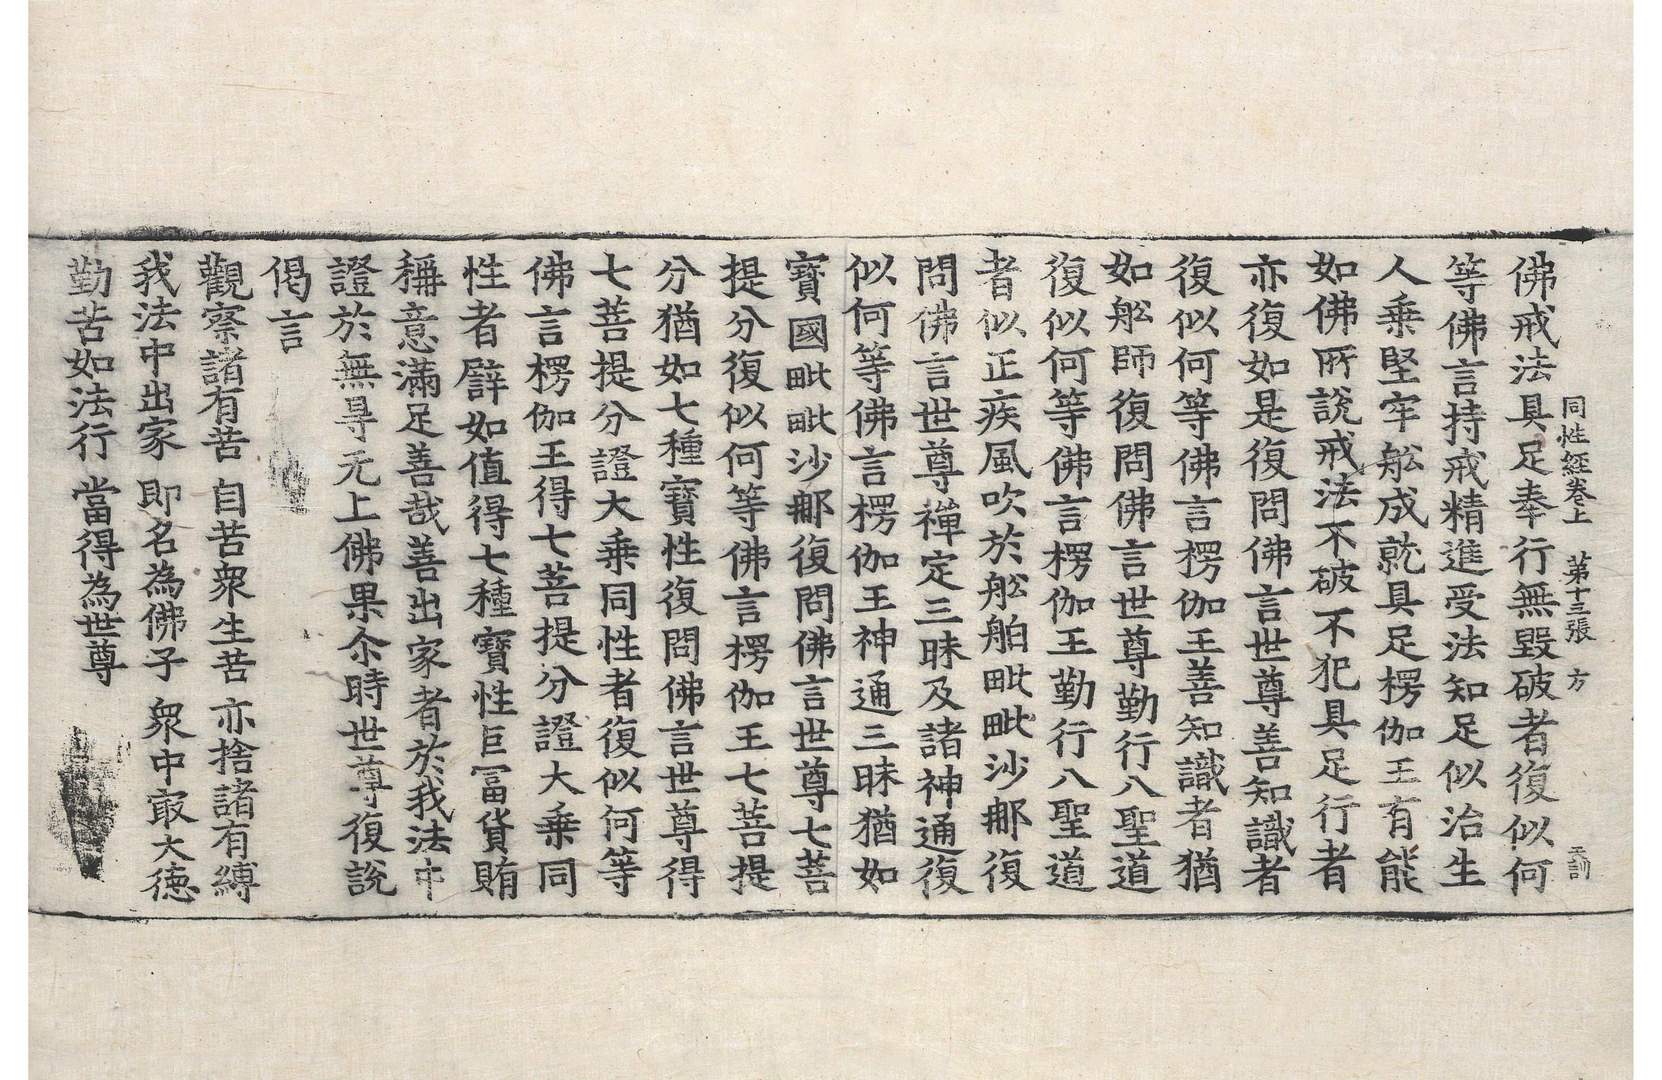 同性経卷上 第十三張 方
佛戒法具足奉行無毀破者復似何
等佛言持戒精進受法知足似治生
人乗堅牢舩成就具足楞伽王有能
如佛所說戒法不破不犯具足行者
亦復如是復問佛言世尊善知識者
復似何等佛言楞伽王善知識者猶
如舩師復問佛言世尊勤行八聖道
復似何等佛言楞伽王勤行八聖道
者似正疾風吹於舩舶毗毗沙郍復
問佛言世尊禪定三昧及諸神通復
似何等佛言楞伽王神通三昧猶如
寶國毗毗沙郍復問佛言世尊七菩
提分復似何等佛言楞伽王七菩提
分猶如七種寶性復問佛言世尊得
七菩提分證大乗同性者復似何等
佛言楞伽王得七菩提分證大乗同
性者譬如值得七種寶性巨冨貨賄
稱意滿足善哉善出家者於我法中
證於無㝵无上佛果尒時世尊復說
偈言
觀察諸有苦 自苦衆生苦 亦捨諸有縛
我法中出家 即名為佛子 衆中㝡大德
勤苦如法行 當得為世尊